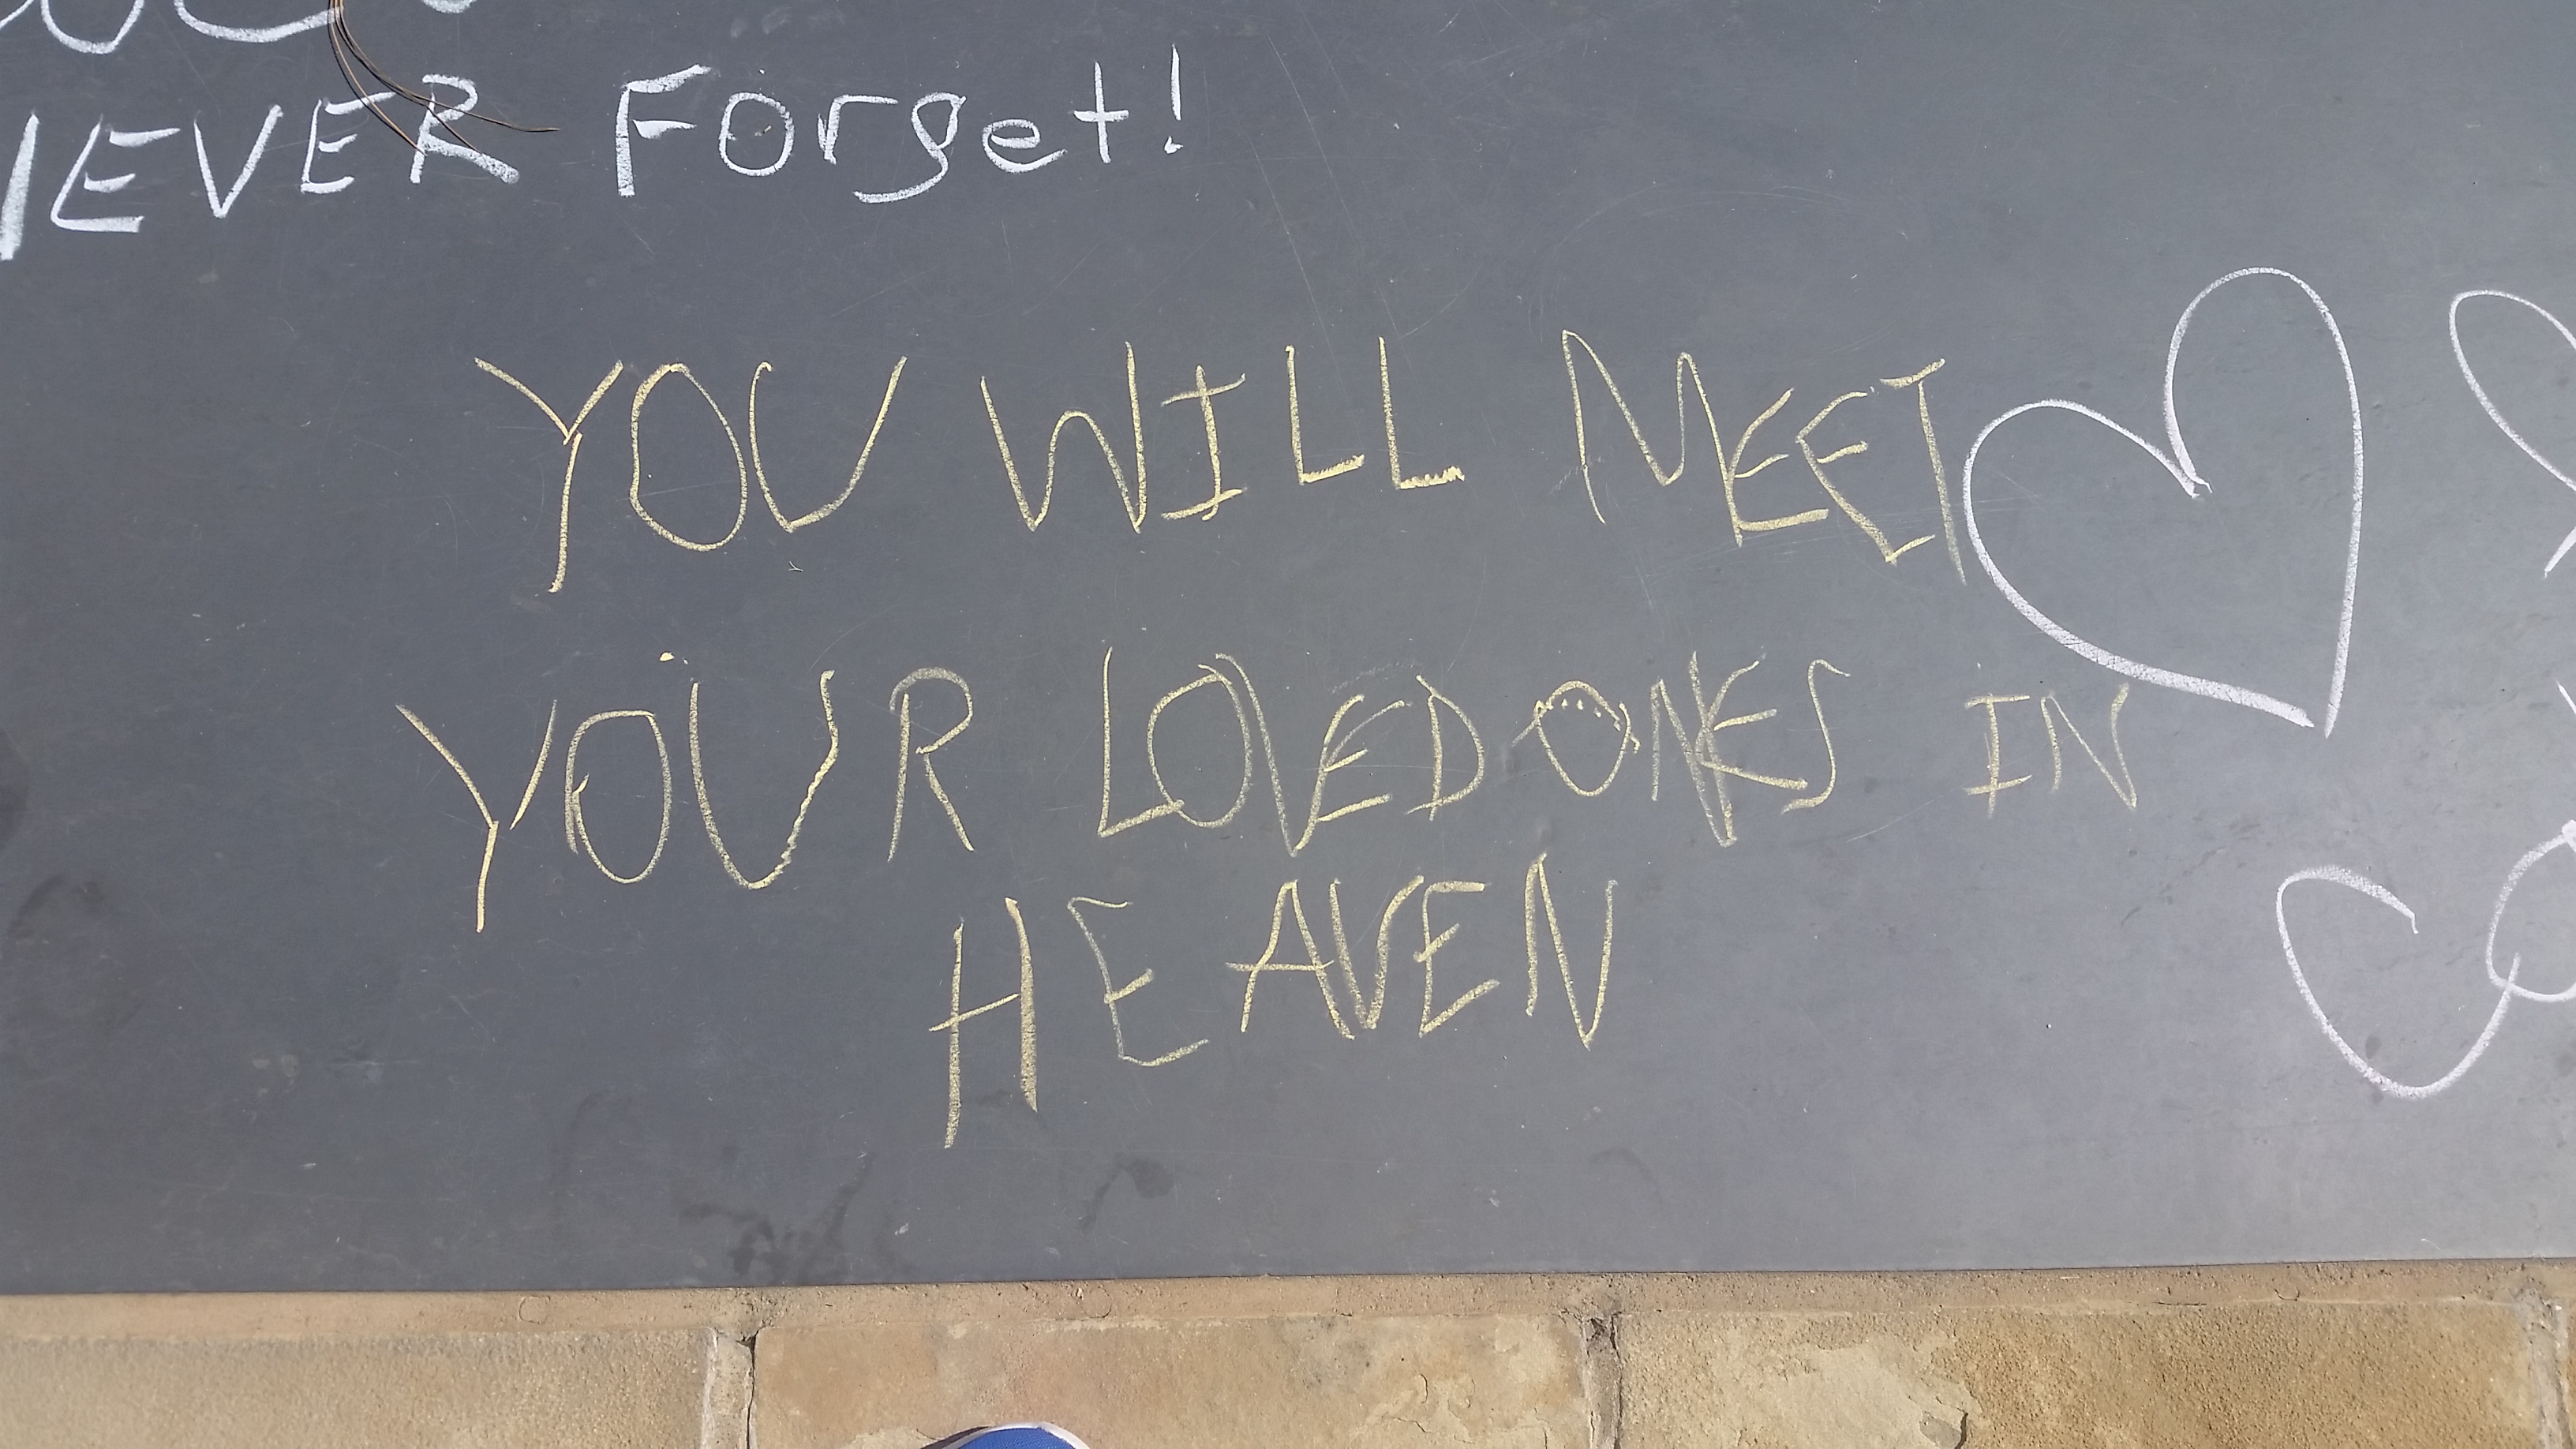 NEVER Forget!
YOU WILL MEET
YOUR LOVED ONES IN
HEAVEN